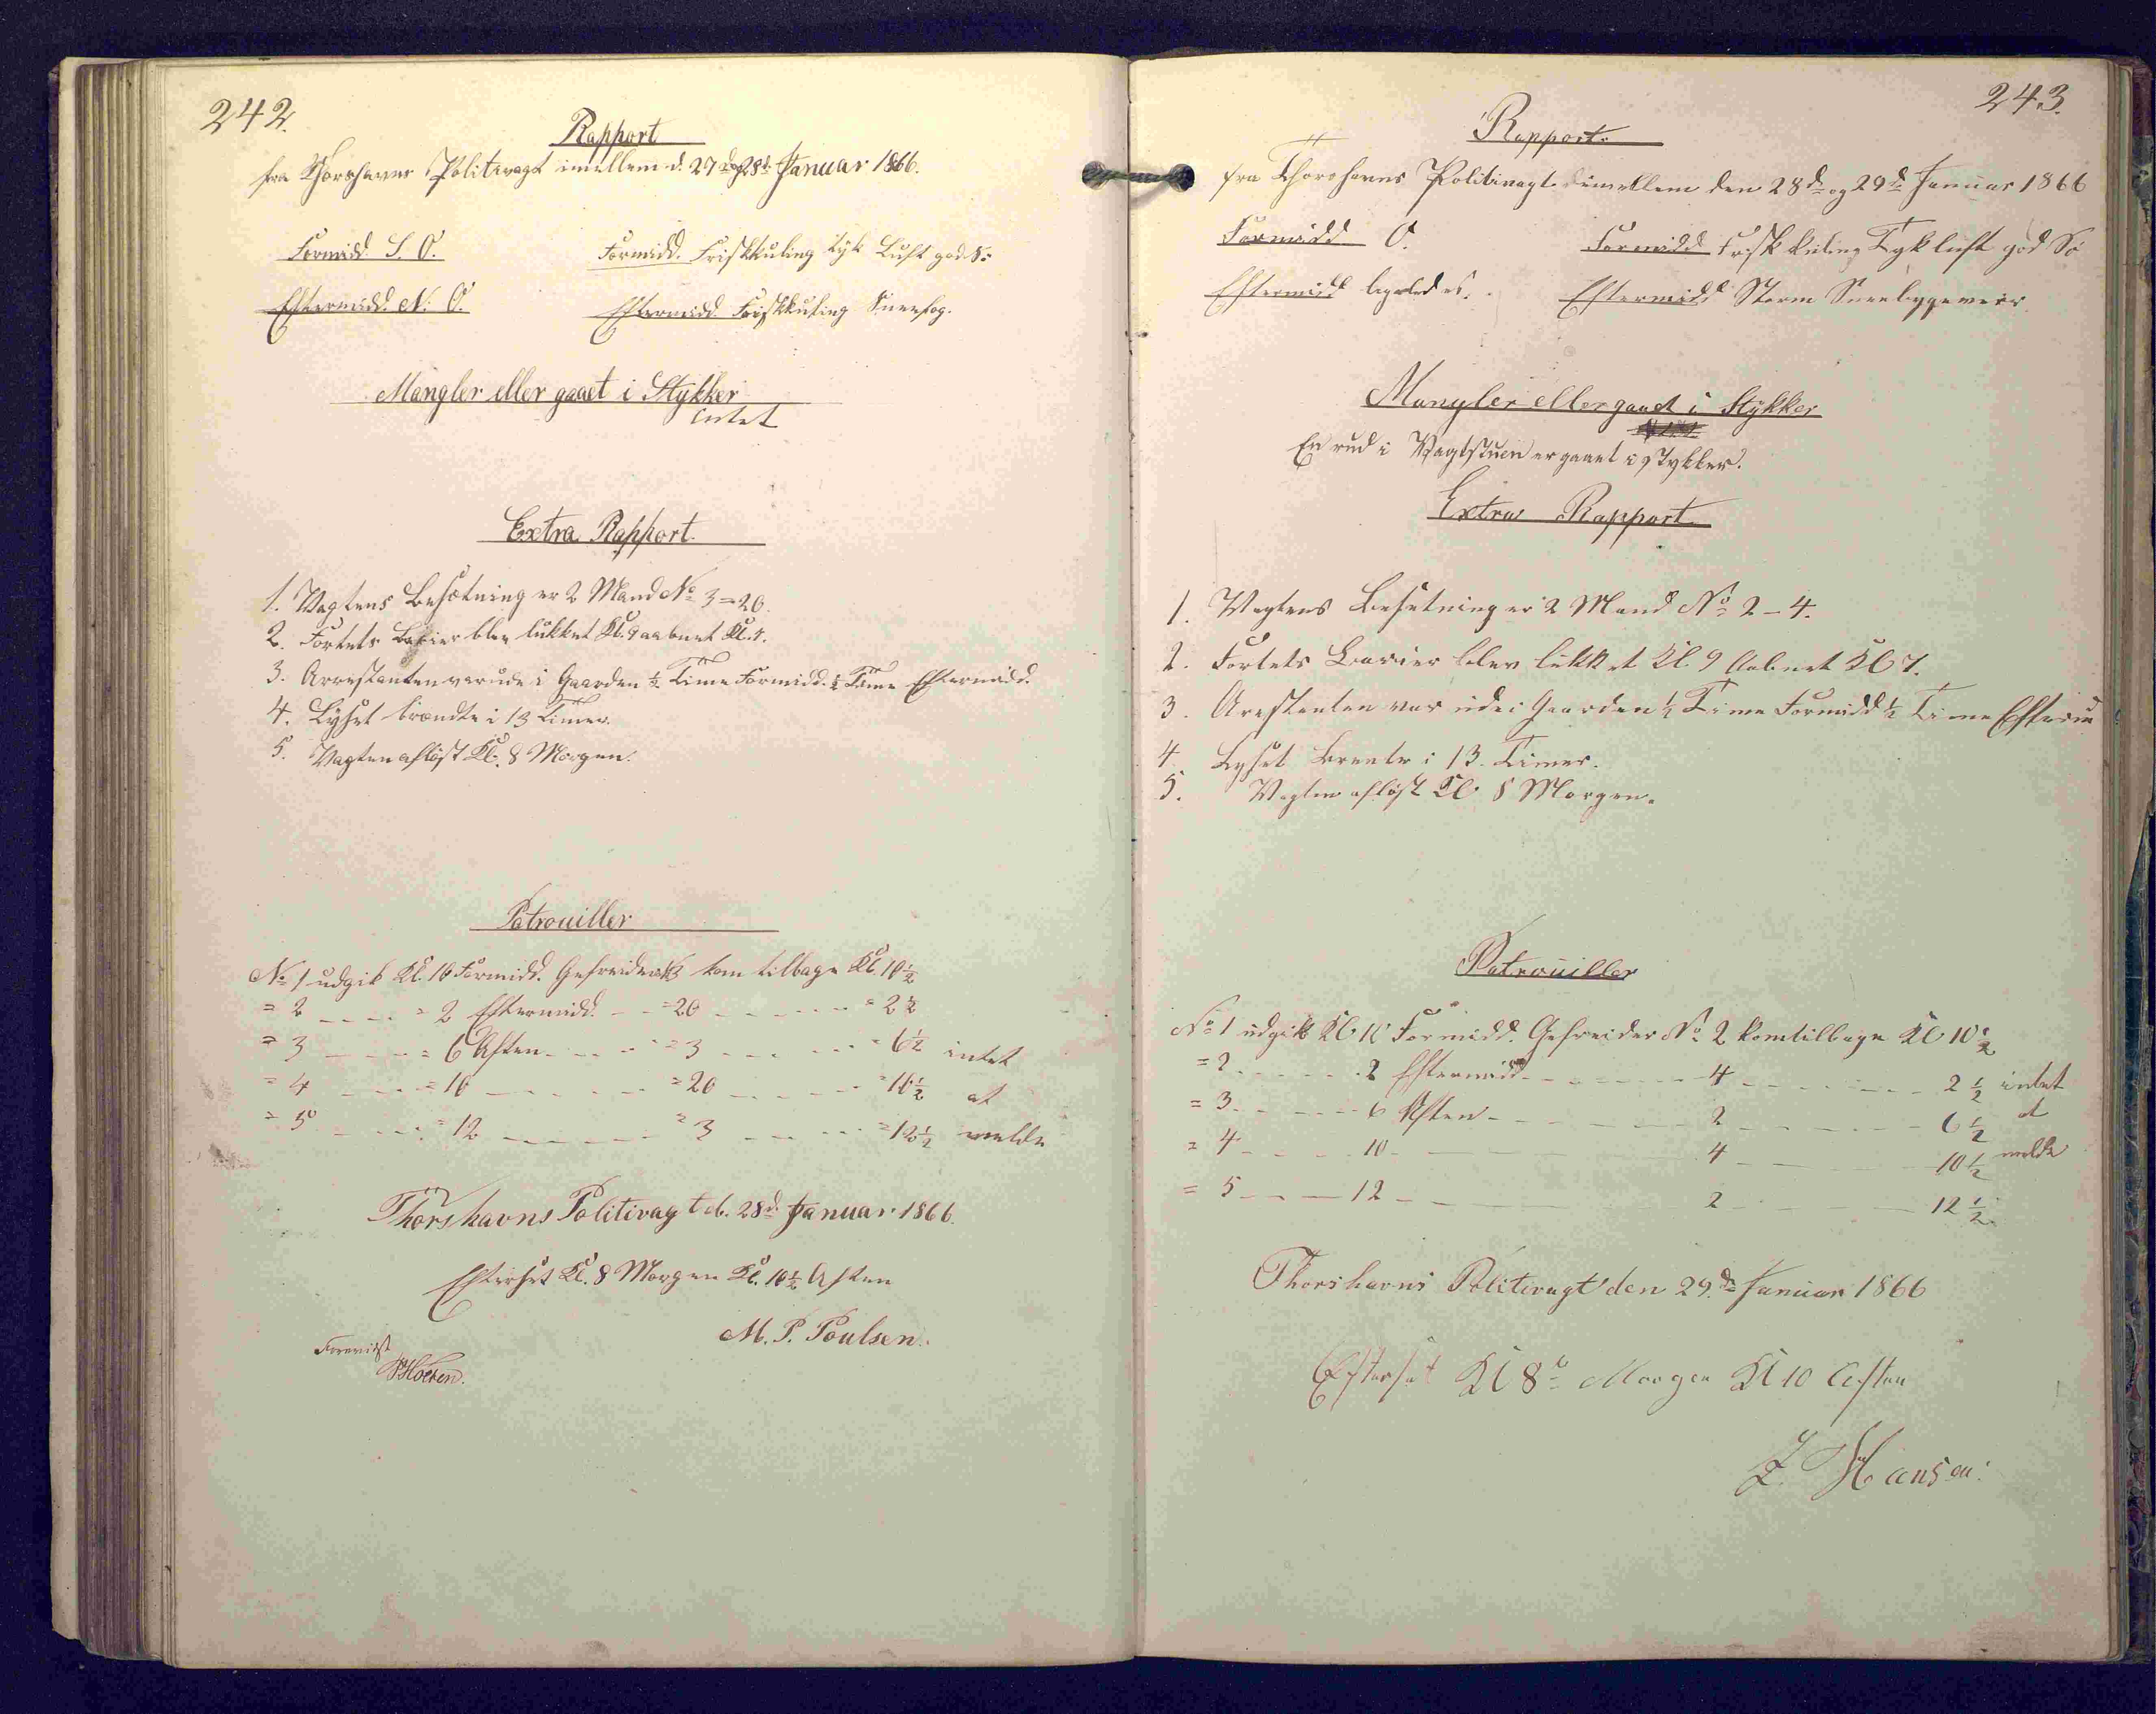 242.
Rapport
fra Thorshavns Politivagt imellem d. 27de og 28de Januar 1866.
Formidd. S. O. Formidd. Friskkuling tyk Luft god S:
Eftermidd. N: O. Eftermidd. Friskkuling Sneefog.
Mangler eller gaaet i Stykker
Intet
Extra Rapport.
1. Vagtens Besætning er 2 Mand No 3 = 20.
2. Fortets Barier blev lukket Kl. 9 aabnet Kl. 7.
3. Arrestanten var ude i Gaarden ½ Time Formidd. ½ Time Eftermidd.
4. Lyset brændte i 13 Timer.
5. Vagten afløst Kl. 8 Morgen.
Patrouiller
No 1 udgik Kl. 10 Formidd. Gefreider No 3 kom tilbage Kl. 10½
= 2 - - - - = 2 Eftermidd. - - = 20 - - - - - - = 2½
= 3 - - - - = 6 Aften - - - - = 3 - - - - - - = 6½ intet
= 4 - - - - = 10 - - - - - - = 20 - - - - - - = 10½ at
= 5 - - - - = 12 - - - - - - = 3 - - - - - - = 12½ melde
Thorshavns Politivagt d. 28d. Januar 1866.
Efterset Kl. 8 Morgen Kl. 10½ Aften
M. P. Poulsen.
Forevist
243.
Rapport.
fra Thorshavns Politivagt imellem den 28de og 29de Januar 1866
Formidd O. Formidd Frisk kuling Tyk luft god Sö
Eftermidd ligeledes. Eftermidd Storm Sneebygeveir.
Mangler eller gaaet i Stykker
En rud i Vagtstuen er gaaet i Stykker.
Extra Rapport.
1. Vagtens Besetning er 2 Mand No 2 - 4.
2. Fortets Barier blev lukket Kl. 9 Aabnet Kl 7.
3. Arestenten var ude i Gaarden ½ Time Formidd ½ Time Efterm
4. Lyset brente i 13. Timer.
5. Vagten afløst Kl 8 Morgen.
Patrouiller
No 1 udgik Kl 10 Formidd. Gefreider No 2 kom tilbage Kl 10½
= 2 - - - - 2 Eftermidd - - - - - 4 - - - - - - 2½ intet
= 3 - - - - 6 Aften - - - - - 2 - - - - - - 6½ at
= 4 - - - - 10 - - - - - 4 - - - - - - 10½ melde
= 5 - - - - 12 - - - - - 2 - - - - - - 12½
Thorshavns Politivagt den 29.de Januar 1866
Efterset Kl 8 Morgen Kl 10 Aften
Z Hansen.